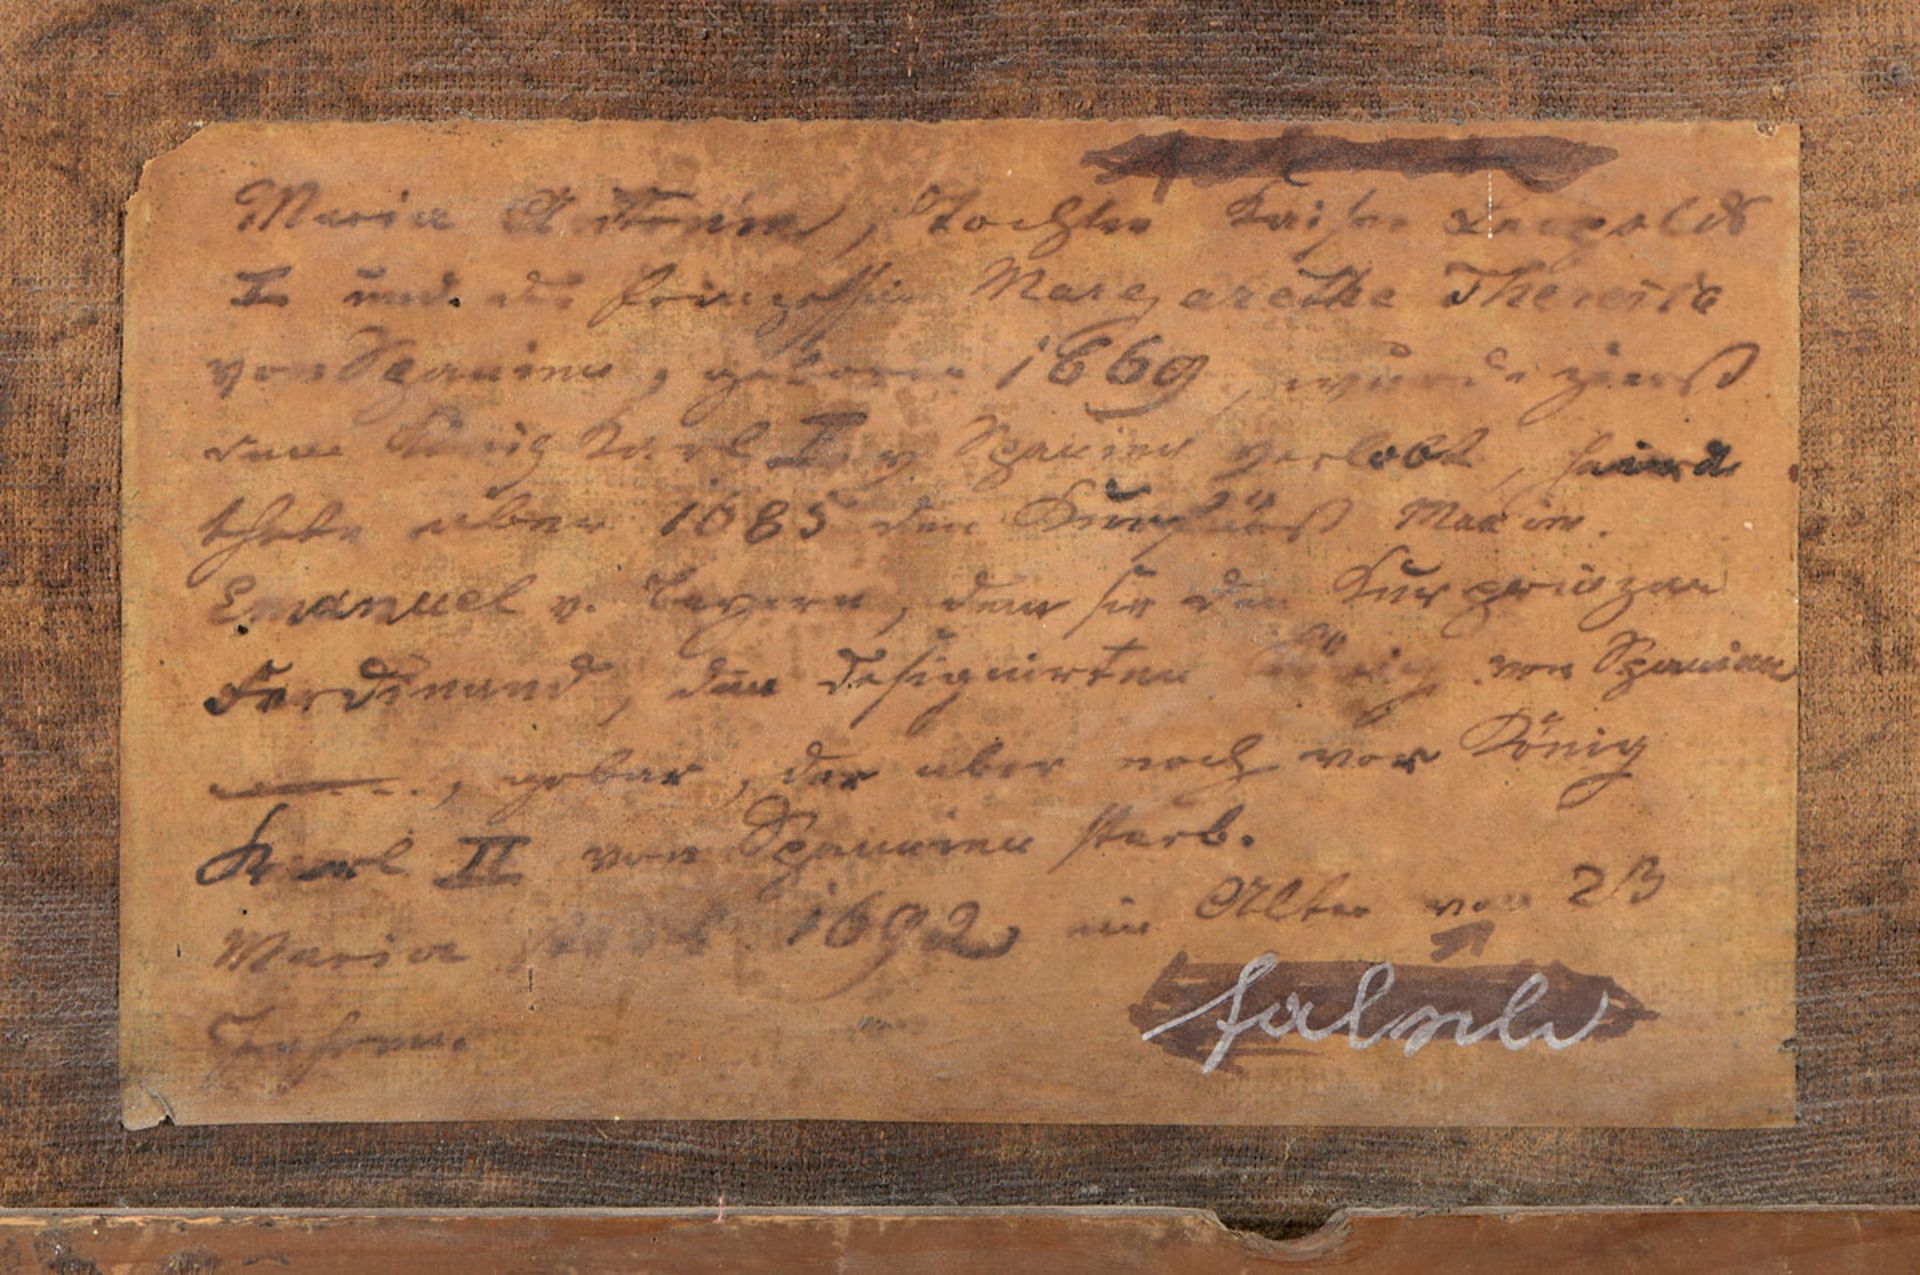 Maria Antonia, Tochter Kaiser Leopolds
I. und der Prinzessin Margarethe Theresia
von Spanien, geboren 1669, wurde zuerst
dem König Karl II v. Spanien verlobt,
aber 1685 den Kurfürst Maxim.
Emanuel v. Bayern, dem sie den Kurprinzen
Ferdinand, den designirten König von Spanien
, gebar, der aber noch vor König
Karl II von Spanien starb.
Maria starb 1692 im Alter von 23
Jahren.
falsch